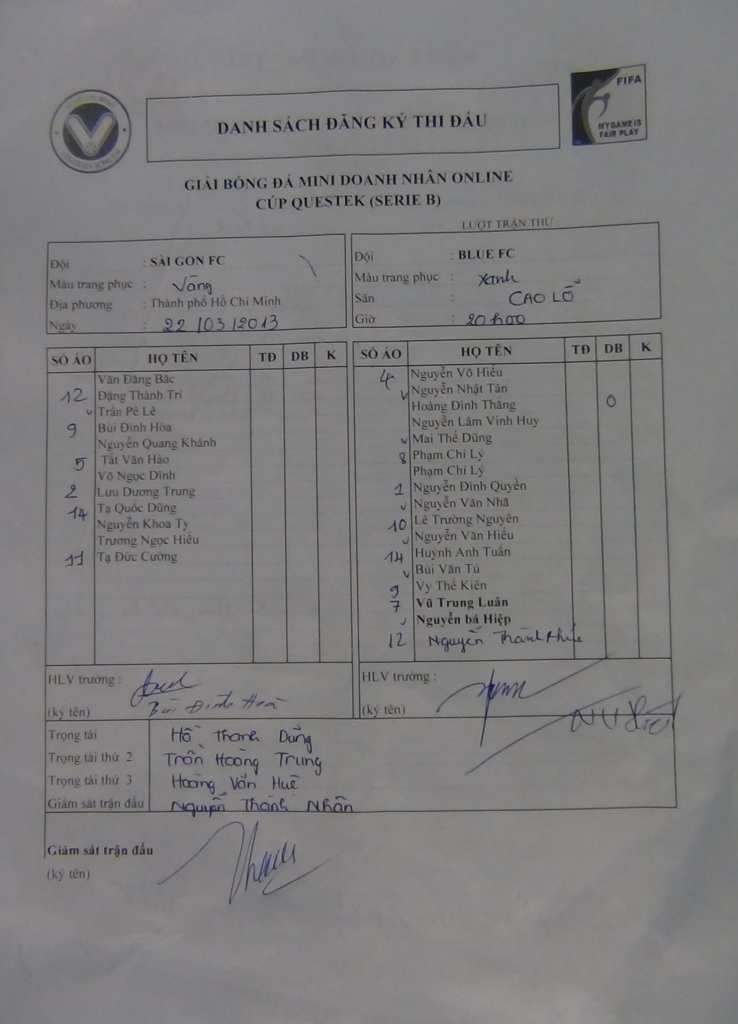 FIFA
MY GAME IS
FAIR PLAY
DANH SÁCH ĐĂNG KÝ THI ĐẤU
GIẢI BÓNG ĐÁ MINI DOANH NHÂN ONLINE
CÚP QUESTEK (SERIE B)
LƯỢT TRẬN THỨ
Đội : SÀI GON FC
Màu trang phục : Vàng
Địa phương : Thành phố Hồ Chí Minh
Ngày : 22/03/2013
Đội : BLUE FC
Màu trang phục : Xanh
Sân : CAO LỖ
Giờ : 20h00
SỐ ÁO HỌ TÊN TĐ DB K
Văn Đăng Bắc
12 Đặng Thành Trí
Trần Pê Lê
9 Bùi Đình Hòa
Nguyễn Quang Khánh
5 Tất Văn Hào
Võ Ngọc Dĩnh
2 Lưu Dương Trung
14 Tạ Quốc Dũng
Nguyễn Khoa Ty
Trương Ngọc Hiếu
11 Tạ Đức Cường
SỐ ÁO HỌ TÊN TĐ DB K
4 Nguyễn Võ Hiếu
Nguyễn Nhật Tân
Hoàng Đình Thăng 0
Nguyễn Lâm Vinh Huy
Mai Thế Dũng
8 Phạm Chí Lý
Phạm Chí Lý
1 Nguyễn Đình Quyền
Nguyễn Văn Nhã
10 Lê Trường Nguyên
Nguyễn Văn Hiếu
14 Huỳnh Anh Tuấn
Bùi Văn Tú
9 Vy Thế Kiên
7 Vũ Trung Luân
Nguyễn bá Hiệp
12 Nguyễn Thành
HLV trưởng :
(ký tên) Bùi Đình Hoà
HLV trưởng :
(ký tên)
Trọng tài Hồ Thanh Dũng
Trọng tài thứ 2 Trần Hoàng Trung
Trọng tài thứ 3 Hoàng Văn Huê
Giám sát trận đấu Nguyễn Thành Nhân
Giám sát trận đấu
(ký tên)